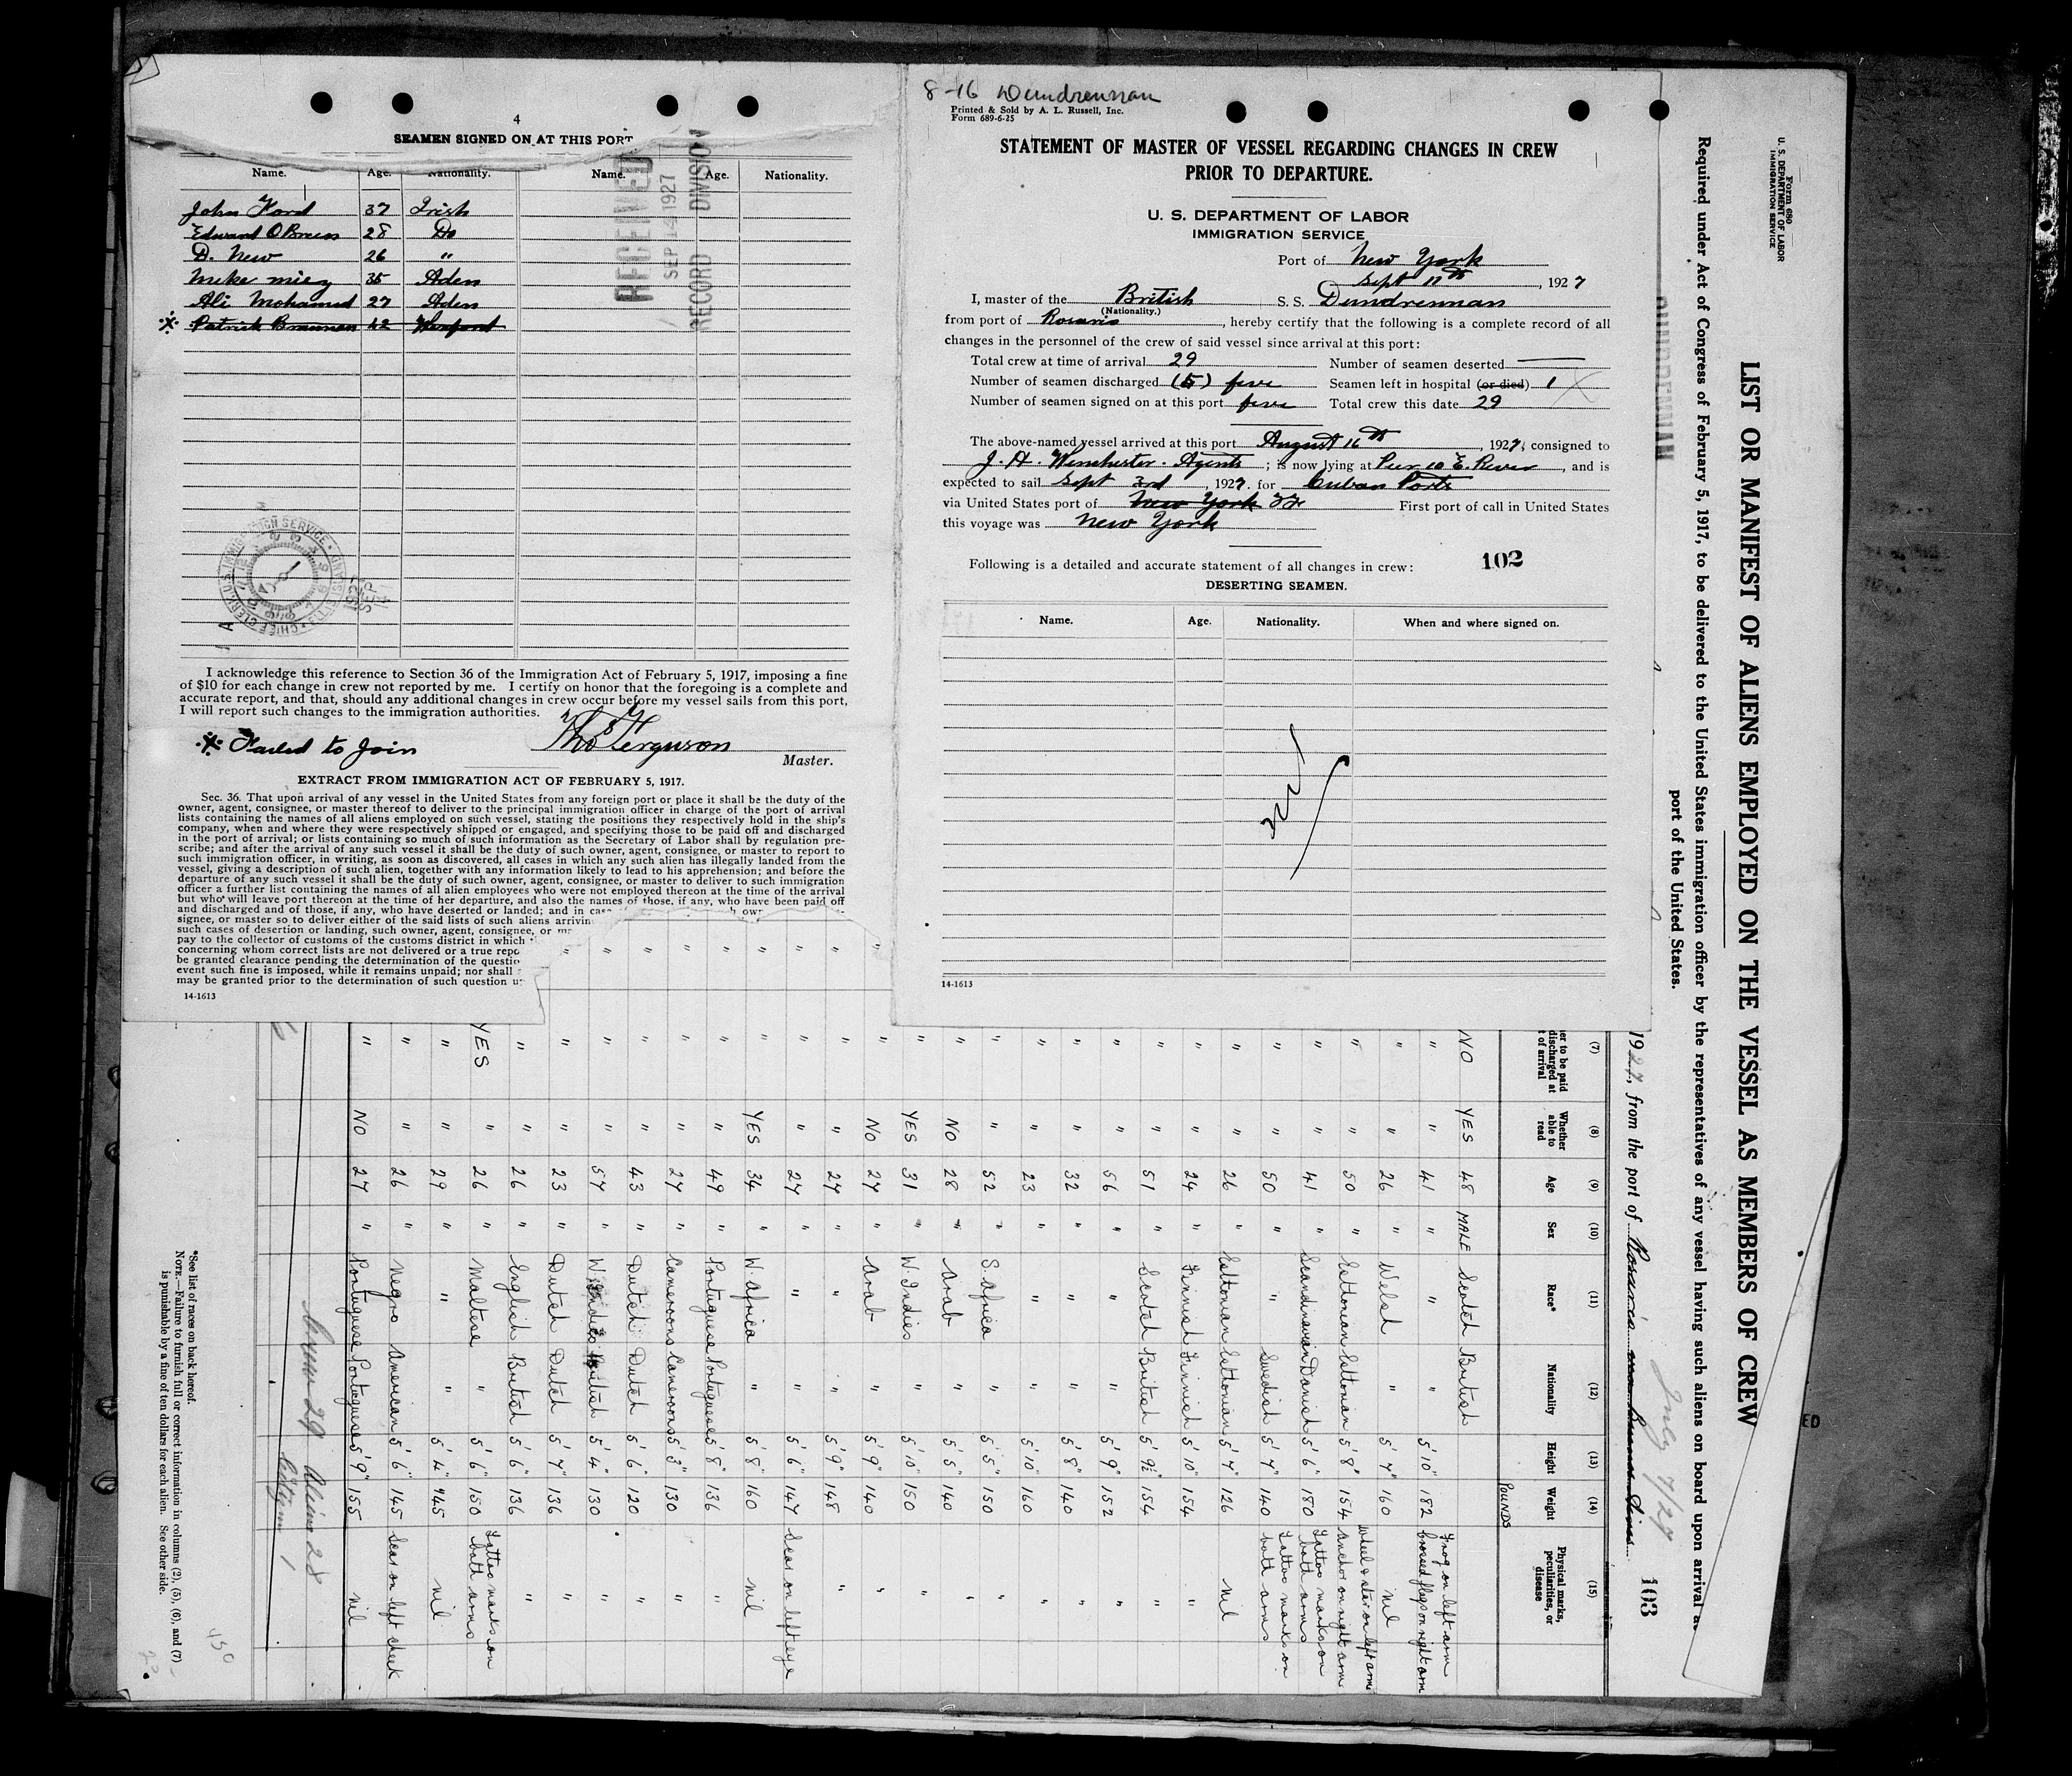 4
SEAMEN SIGNED ON AT THIS PORT
Name. Age. Nationality. Name. Age. Nationality.
John Ford 37 Irish
Edward O'Brien 28 Do
D. New 26 "
Mike 35 Aden
Ali Mohamed 27 Aden
Patrick Brannan 42 Wexford
RECEIVED
SEP 14 1927
RECORD DIVISION
I acknowledge this reference to Section 36 of the Immigration Act of February 5, 1917, imposing a fine
of $10 for each change in crew not reported by me. I certify on honor that the foregoing is a complete and
accurate report, and that, should any additional changes in crew occur before my vessel sails from this port,
I will report such changes to the immigration authorities.
Failed to Join
Ferguson
Master.
EXTRACT FROM IMMIGRATION ACT OF FEBRUARY 5, 1917.
Sec. 36. That upon arrival of any vessel in the United States from any foreign port or place it shall be the duty of the
owner, agent, consignee, or master thereof to deliver to the principal immigration officer in charge of the port of arrival
lists containing the names of all aliens employed on such vessel, stating the positions they respectively hold in the ship's
company, when and where they were respectively shipped or engaged, and specifying those to be paid off and discharged
in the port of arrival; or lists containing so much of such information as the Secretary of Labor shall by regulation pre-
scribe; and after the arrival of any such vessel it shall be the duty of such owner, agent, consignee, or master to report to
such immigration officer, in writing, as soon as discovered, all cases in which any such alien has illegally landed from the
vessel, giving a description of such alien, together with any information likely to lead to his apprehension; and before the
departure of any such vessel it shall be the duty of such owner, agent, consignee, or master to deliver to such immigration
officer a further list containing the names of all alien employees who were not employed thereon at the time of the arrival
but who will leave port thereon at the time of her departure, and also the names of those, if any, who have been paid off
and discharged and of those, if any, who have deserted or landed; and in case
signee, or master so to deliver either of the said lists of such aliens arriving
such cases of desertion or landing, such owner, agent, consignee, or
pay to the collector of customs of the customs district in which
concerning whom correct lists are not delivered or a true
be granted clearance pending the determination of the
event such fine is imposed, while it remains unpaid; nor shall
may be granted prior to the determination of such question
14-1613
8-16 Dundrennan
Printed & Sold by A. L. Russell, Inc.
Form 689-6-25
STATEMENT OF MASTER OF VESSEL REGARDING CHANGES IN CREW
PRIOR TO DEPARTURE.
U. S. DEPARTMENT OF LABOR
IMMIGRATION SERVICE
Port of New York
Sept 11th, 1927
I, master of the British S. S. Dundrennan
(Nationality.)
from port of Rosario, hereby certify that the following is a complete record of all
changes in the personnel of the crew of said vessel since arrival at this port:
Total crew at time of arrival 29 Number of seamen deserted
Number of seamen discharged (5) five Seamen left in hospital (or died) 1
Number of seamen signed on at this port five Total crew this date 29
The above-named vessel arrived at this port August 16th, 1927, consigned to
J. H. Winchester. Agents; is now lying at Pier 10 E. River, and is
expected to sail Sept 3rd, 1927. for Cuban Ports
via United States port of New York First port of call in United States
this voyage was New York
Following is a detailed and accurate statement of all changes in crew: 102
DESERTING SEAMEN.
Name. Age. Nationality. When and where signed on.
14-1613
Form 680
U. S. DEPARTMENT OF LABOR
IMMIGRATION SERVICE
LIST OR MANIFEST OF ALIENS EMPLOYED ON THE VESSEL AS MEMBERS OF CREW
Required under Act of Congress of February 5, 1917, to be delivered to the United States immigration officer by the representatives of any vessel having such aliens on board upon arrival at
port of the United States.
DUNDRENNAN
1927, from the port of Rosario via Buenos Aires
July 7/27
103
(7) (8) (9) (10) (11) (12) (13) (14) (15)
er to be paid discharged at of arrival Whether able to read Age Sex Race* Nationality Height Weight Physical marks, peculiarities, or disease
POUNDS
NO YES 48 MALE Scotch British
" " 41 " " " 5'10" 182 Frog on left arm crossed flags on right arm
" " 26 " Welsh " 5'7" 160 nil
" " 50 " Lettonian Lettonian 5'8" 154 wheel & star on left arm anchor on right arm
" " 41 " Scandinavian Danish 5'6" 180 Tattoo marks on both arms
" " 50 " " Swedish 5'7" 140 Tattoo marks on both arms
" " 26 " Lettonian Lettonian 5'7" 126 nil
" " 24 " Finnish Finnish 5'10" 154 "
" " 51 " Scotch British 5'9½" 154 "
" " 56 " " " 5'9" 152 "
" " 32 " " " 5'8" 140 "
" " 23 " " " 5'10" 160 "
" " 52 " S. Africa " 5'5" 150 "
" NO 28 " Arab " 5'5" 140 "
" YES 31 " W. Indies " 5'10" 150 "
" NO 27 " Arab " 5'9" 140 "
" " 27 " " " 5'9" 148 "
" " 27 " " " 5'6" 147 Scar on left eye
" YES 34 " W. Africa " 5'8" 160 nil
" " 49 " Portuguese Portuguese 5'8" 136 "
" " 27 " Cameroons Cameroons 5'3" 130 "
" " 43 " Dutch Dutch 5'6" 120 "
" " 57 " W. Indies British 5'4" 130 "
" " 23 " Dutch Dutch 5'7" 136 "
" " 26 " English British 5'6" 136 "
YES " 26 " Maltese " 5'6" 150 Tattoo marks on both arms
" " 29 " " " 5'4" 145 nil
" " 26 " Negro American 5'6" 145 Scar on left cheek
" NO 27 " Portuguese Portuguese 5'9" 155 nil
Crew 29 Aliens 28
Citizen 1
*See list of races on back hereof.
NOTE.—Failure to furnish full or correct information in columns (2), (5), (6), and (7)
is punishable by a fine of ten dollars for each alien. See other side.
450